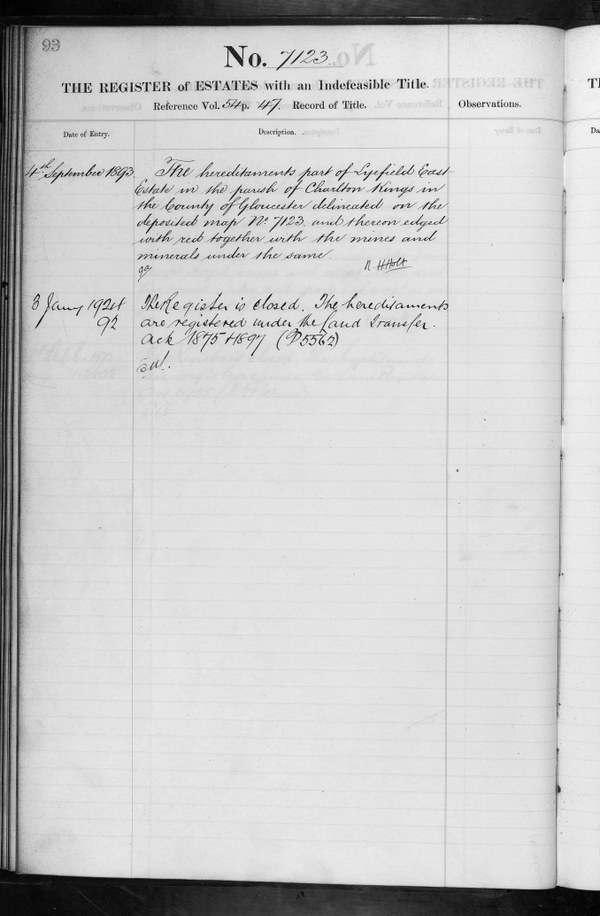 93
No. 7123
THE REGISTER of ESTATES with an Indefeasible Title.
Reference Vol. 54 p. 47. Record of Title.
Observations.
Date of Entry.
Description.
4th September 1893
The hereditaments part of Lyefield East
Estate in the parish of Charlton Kings in
the County of Gloucester delineated on the
deposited map No 7123 and thereon edged
with red together with the mines and
minerals under the same.
R. H Holt
3 Jany 192
92
The Register is closed. The hereditaments
are registered under the Land Transfer.
Acts 1875 & 1897 (P5562)